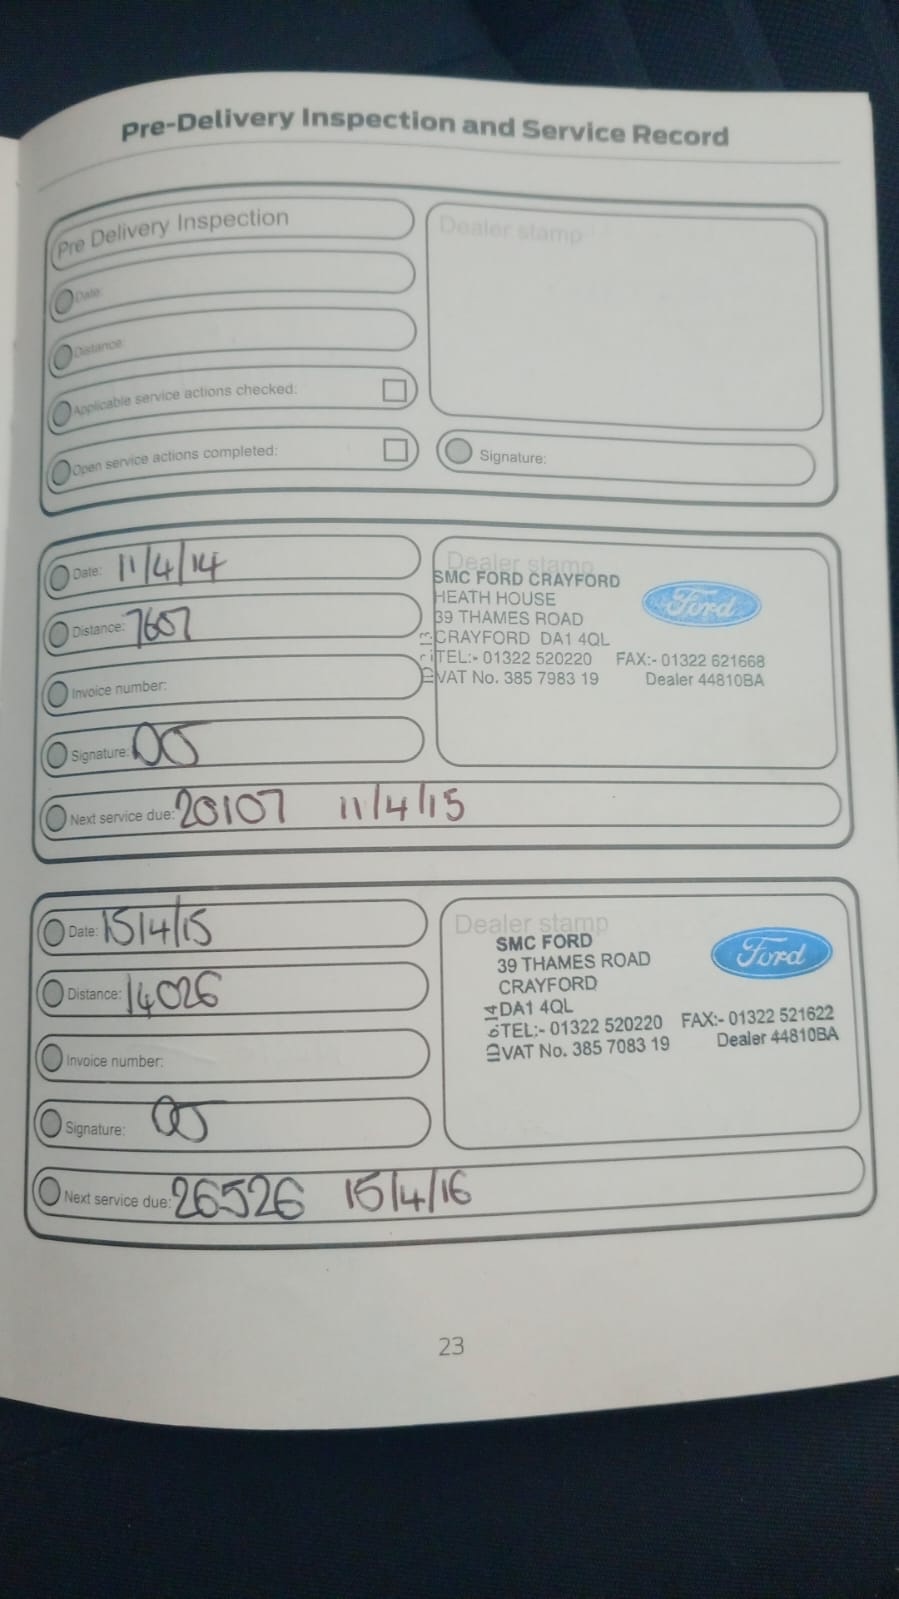 Pre-Delivery Inspection and Service Record
Pre Delivery Inspection
Date:
Distance:
Applicable service actions checked:
Open service actions completed:
Dealer stamp
Signature:
Date: 11/4/14
Distance: 7607
Invoice number:
Signature: OJ
Next service due: 20107 11/4/15
Dealer stamp
SMC FORD CRAYFORD
HEATH HOUSE
39 THAMES ROAD
CRAYFORD DA1 4QL
TEL:- 01322 520220 FAX:- 01322 621668
VAT No. 385 7983 19 Dealer 44810BA
Ford
Date: 15/4/15
Distance: 14026
Invoice number:
Signature: OJ
Next service due: 26526 15/4/16
Dealer stamp
SMC FORD
39 THAMES ROAD
CRAYFORD
DA1 4QL
TEL:- 01322 520220 FAX:- 01322 521622
VAT No. 385 7083 19 Dealer 44810BA
Ford
23